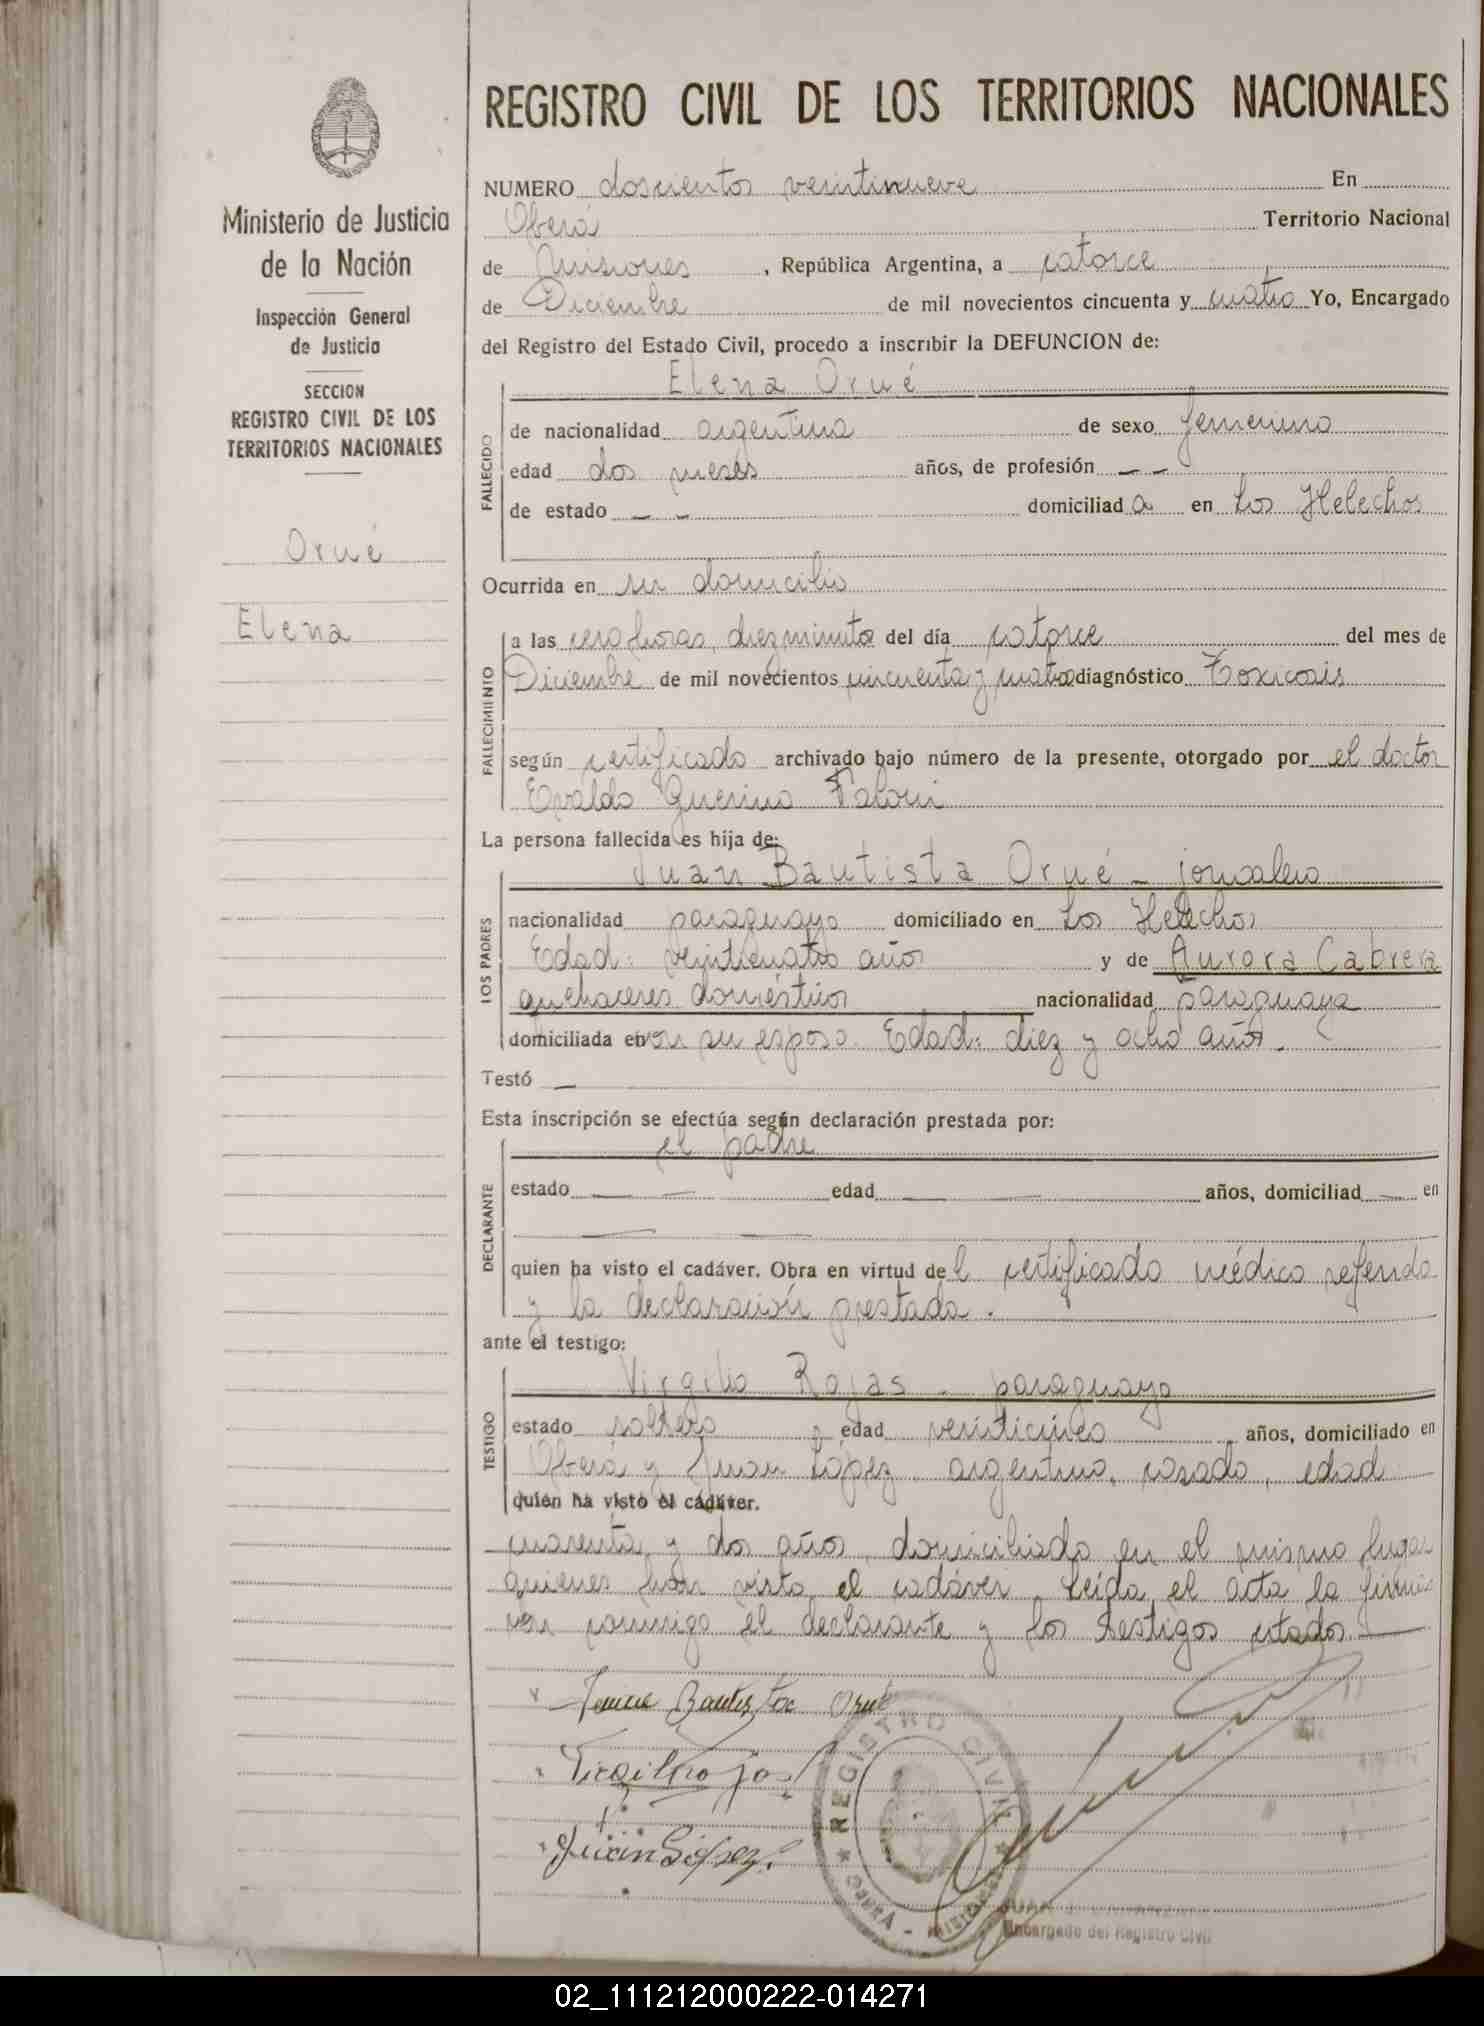 Ministerio de Justicia
de la Nación
Inspección General
de Justicia
SECCION
REGISTRO CIVIL DE LOS
TERRITORIOS NACIONALES
Orué
Elena
REGISTRO CIVIL DE LOS TERRITORIOS NACIONALES
NUMERO doscientos veintinueve En
Oberá Territorio Nacional
de Misiones, República Argentina, a catorce
de Diciembre de mil novecientos cincuenta y cuatro Yo, Encargado
del Registro del Estado Civil, procedo a inscribir la DEFUNCION de:
Elena Orué
FALLECIDO
de nacionalidad argentina de sexo femenino
edad dos meses años, de profesión — —
de estado — — domiciliad a en Los Helechos
Ocurrida en su domicilio
FALLECIMIENTO
a las cero horas, diez minutos del día catorce del mes de
Diciembre de mil novecientos cincuenta y cuatro diagnóstico Toxicosis
según certificado archivado bajo número de la presente, otorgado por el doctor
Evaldo Guerino
La persona fallecida es hija de:
LOS PADRES
Juan Bautista Orué - jornalero
nacionalidad paraguayo domiciliado en Los Helechos
Edad: veinticuatro años y de Aurora Cabrera
quehaceres domésticos nacionalidad paraguaya
domiciliada en con su esposo. Edad: diez y ocho años.
Testó —
Esta inscripción se efectúa según declaración prestada por:
DECLARANTE
el padre
estado — — edad — — años, domiciliad — en
— —
quien ha visto el cadáver. Obra en virtud de l certificado médico referido
y la declaración prestada.
ante el testigo:
TESTIGO
Virgilio Rojas - paraguayo
estado soltero, edad veinticinco años, domiciliado en
Oberá y Juan López, argentino, casado, edad
quien ha visto el cadáver.
cuarenta y dos años, domiciliado en el mismo lugar
quienes han visto el cadáver. Leída el acta la firman
con conmigo el declarante y los testigos citados. —
Juan Bautista Orué
Virgilio Rojas
Juan López
REGISTRO CIVIL
OBERA - MISIONES
JUAN
Encargado del Registro Civil
02_111212000222-014271